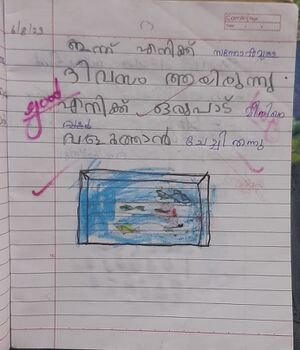 6/8/23
ഇന്ന് എനിക്ക് സന്തോഷമുള്ള
ദിവസം ആയിരുന്നു.
എനിക്ക് ഒരുപാട് മീനിനെ
വളർത്താൻ ചേച്ചി തന്നു